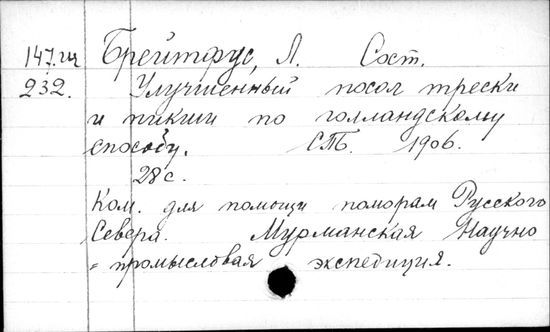 147.щ Брейтфус, Л. Сост.
232. Улучшенный посол трески
и пикши по голландскому
способу. СПБ. 1906.
28 с.
Ком. для помощи поморам Русского
Севера. Мурманская Научно
- промысловая экспедиция.